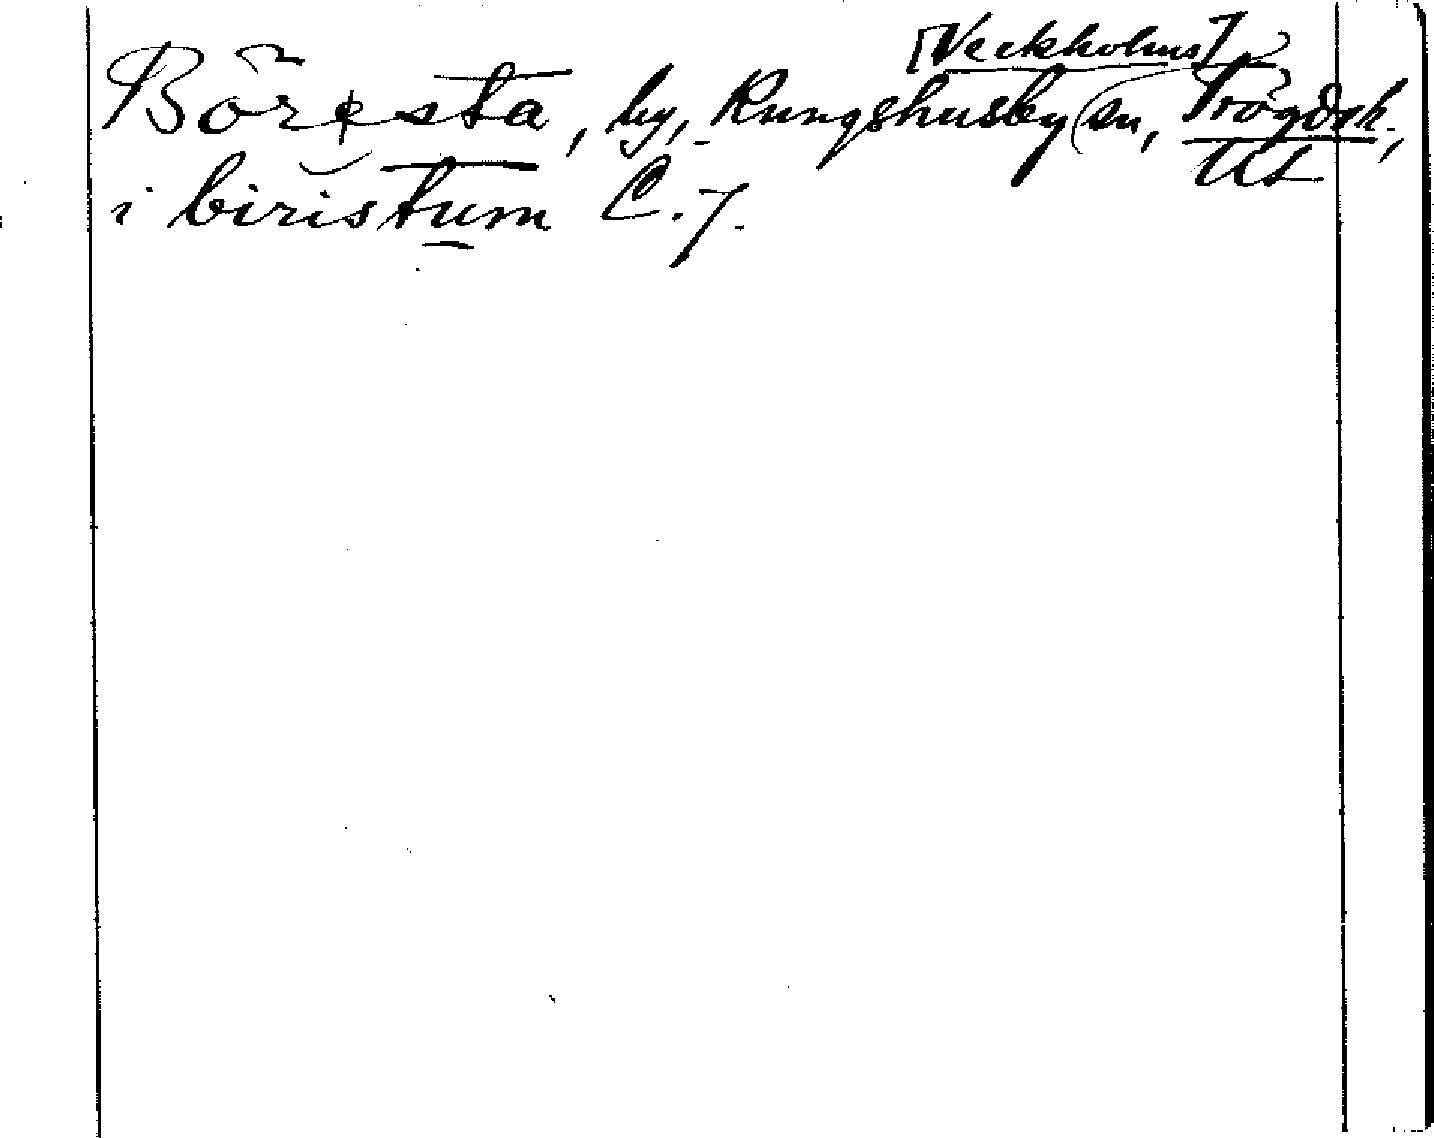 [Veckholms]
Böresta, by, Kungshusby sn, Trögds h.,
UL
i biristum C. 7.